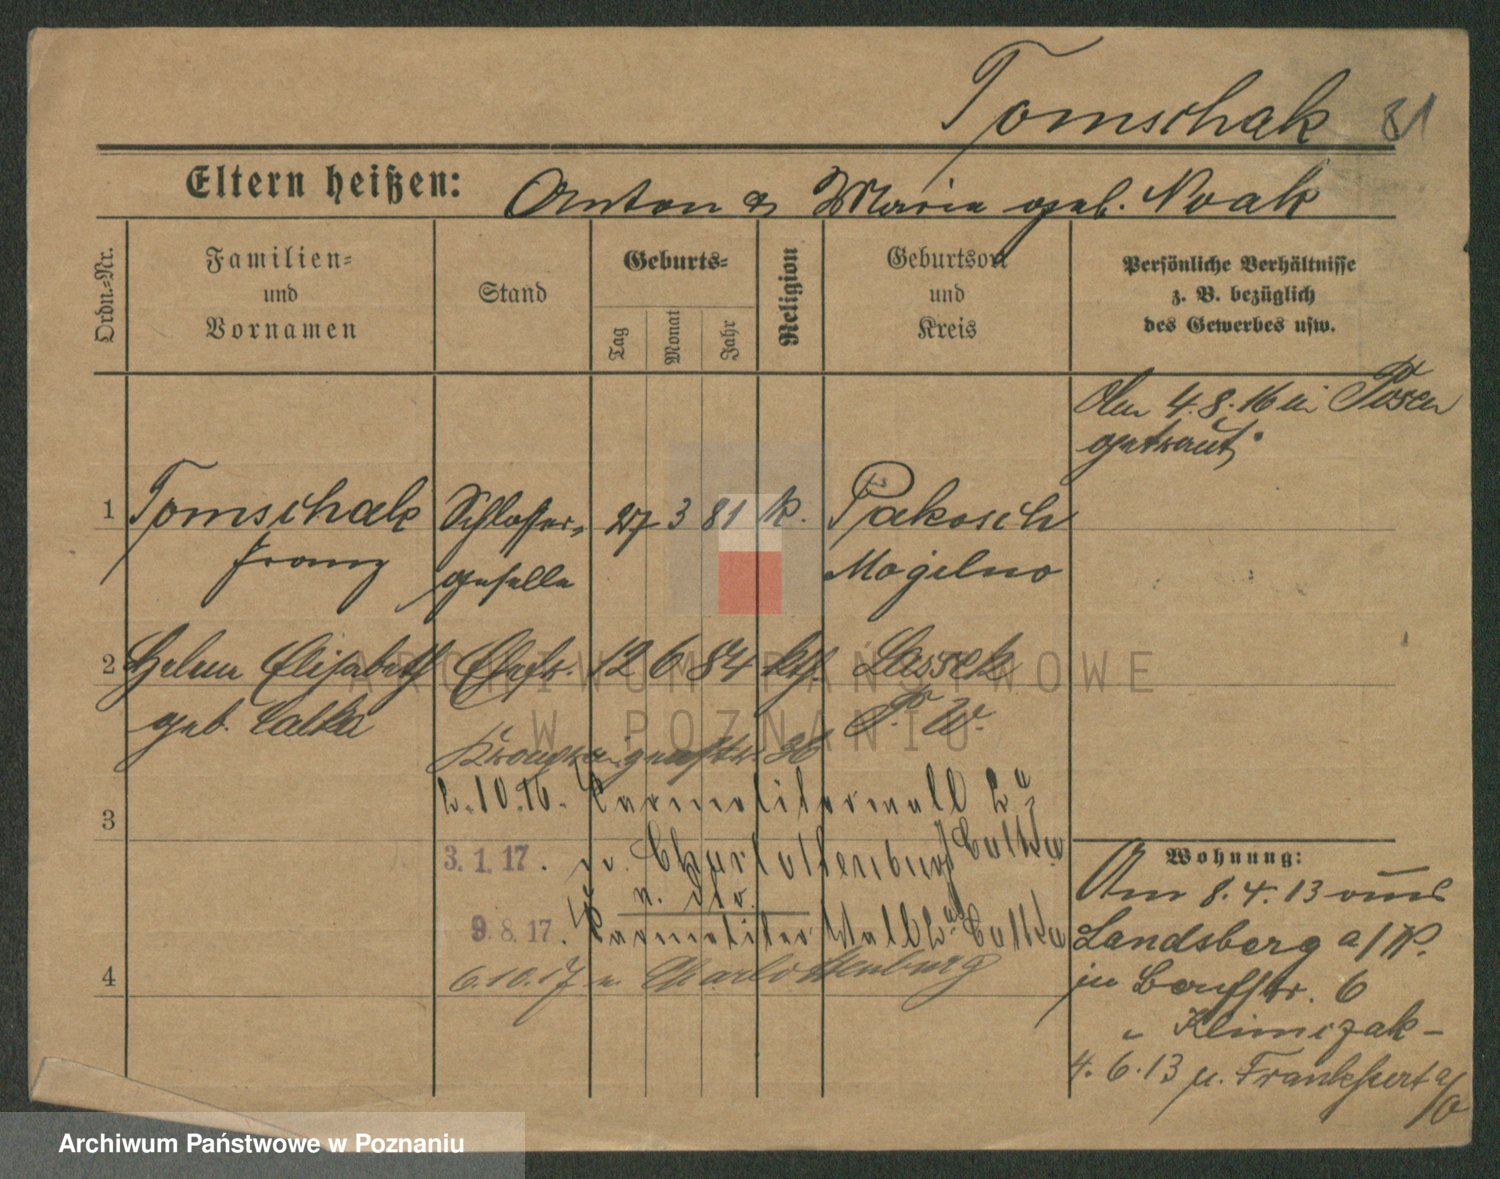 Tomschak 81
Eltern heißen: Anton & Maria geb. Noak
Ordn.-Nr.
Familien-
und
Vornamen
Stand
Geburts-
Tag
Monat
Jahr
Religion
Geburtsort
und
Kreis
Persönliche Verhältnisse
z. B. bezüglich
des Gewerbes usw.
Am 4.8.16 in Posen
getraut.
1 Tomschak Schlosser- 27 3 81 k. Pakosch
Franz geselle Mogilno
2 Helene Elisabeth Ehefr. 12 6 84 kth. Lassek
geb. Calka P. W.
Kronprinzenstr. 36
2.10.16. Karmeliterwall 2a
3
3.1.17. n. Charlottenburg Calka
v. dto.
9.8.17. Karmeliter Wall 2a Calka
4
6.10.17 n. Charlottenburg
Wohnung:
Am 8.4.13 aus
Landsberg a/W.
in 6
" Klimczak -
4.6.13 n. Frankfurt a/O
ARCHIWUM PAŃSTWOWE
W POZNANIU
Archiwum Państwowe w Poznaniu